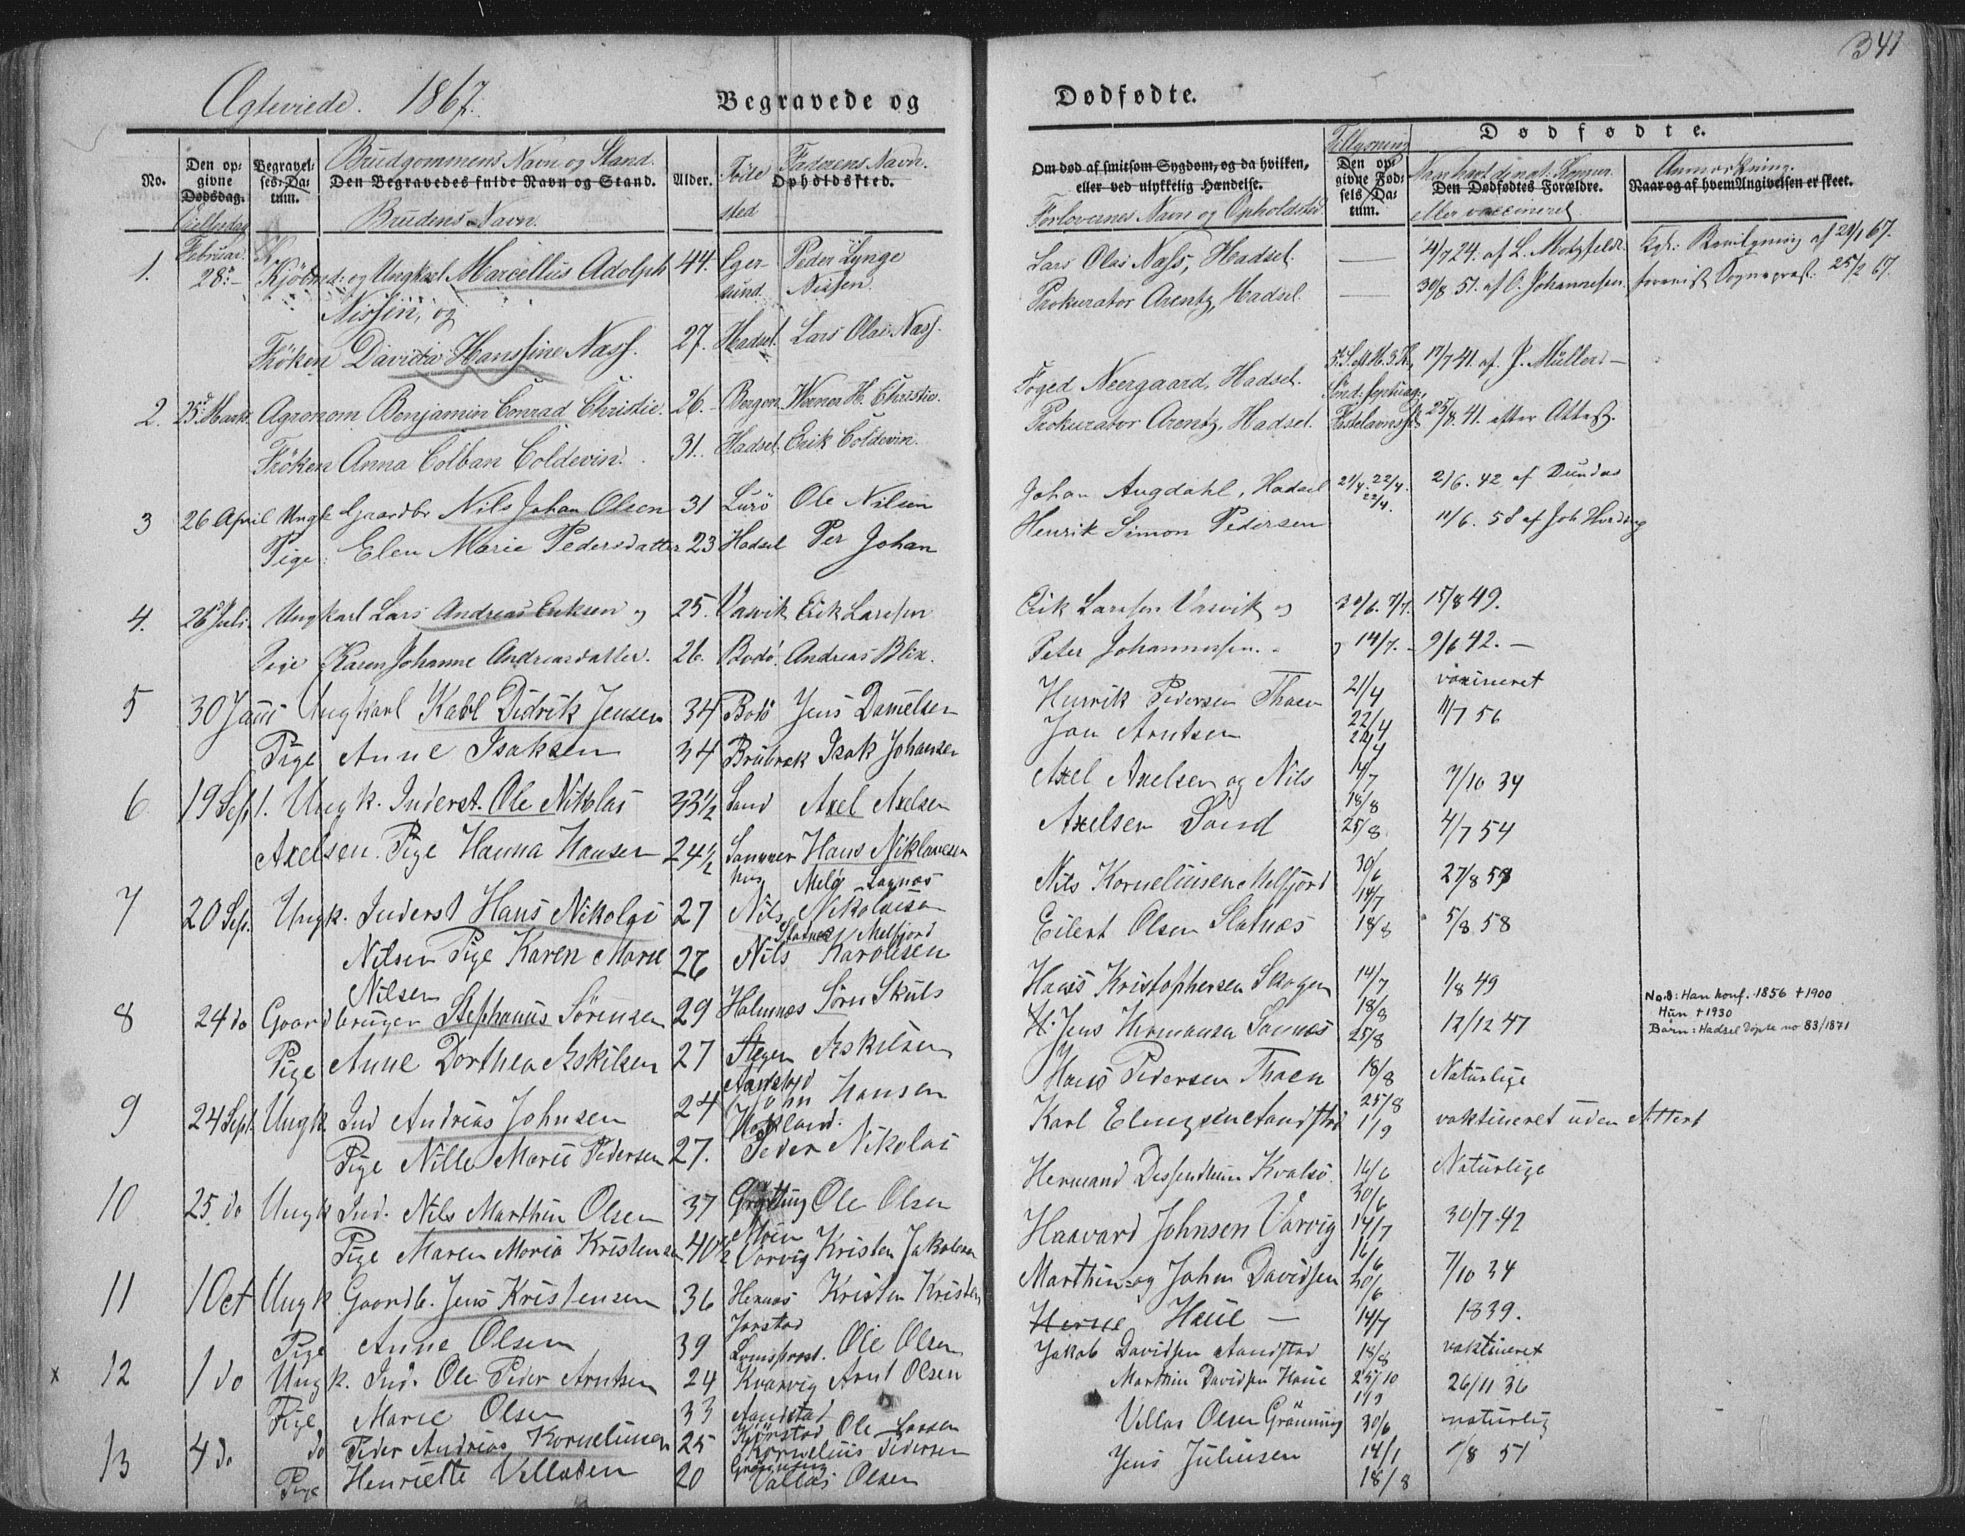 341
Ægteviede. 1867.
Begravede og
Dødfødte.
No.
Den opgivne Dødsdag.
Begravelses-Datum.
Brudgommens Navn og Stand.
Den Begravedes fulde Navn og Stand.
Brudens Navn.
Alder.
Føde sted
Faderens Navn.
Opholdssted.
Om død af smitsom Sygdom, og da hvilken,
eller ved ulykkelig Hændelse.
Forlovernes Navn og Opholdsted
Tillysning
Den opgivne Fødsels-Datum.
Dødfødte.
Den Dødfødtes Forældre.
eller vaccineret
Anmærkning.
Naar og af hvem Angivelsen er skeet.
1. Februar 28de Kjøbmd. og Ungksl. Marcellus Adolph 44. Egersund. Peder Lynge Nissen
Nissen, og
Frøken Davida Hanssine Næss. 27. Hadsel Lars Olai Næss.
Lars Olai Næss, Hadsel. 4/7 24. af L. Motzfeldt. Kgl: Bevilgning af 29/1 67.
Prokurator Arentz, Hadsel. 30/8 51. af O. Johannessen Sognepræst. 25/2 67.
2. 25de Marts. Agronom Benjamin Conrad Christie. 26. Bergen Werner H. Christie.
Frøken Anna Colban Coldevin. 31. Hadsel. Erik Coldevin.
Foged Neergaard, Hadsel. 17/7 41. af P. Müller
Prokurator Arentz, Hadsel. 25/8. 41. efter Attest.
3 26 April Ungk Gaardbr Nils Johan Olsen 31 Lurö Ole Nilsen
Pige Elen Marie Pedersdatter 23 Hadsel Per Johan
Johan Augdahl, Hadsel 21/4. 22/4. 22/4. 21/6. 42 af Dundas
Henrik Simon Pedersen 11/6. 58 af Joh Hveding
4. 26 Juli. Ungkarl Lars Andreas Eriksen og 25. Varvik Erik Larssen
Pige Karen Johanne Andreasdatter. 26. Bodö. Andreas Blix.
Erik Larssen Varvik og 30/6. 7/7. 15/8 49.
Peter Johannessen. 14/7. 9/6 42.
5 30 Juni Ungkarl Karl Didrik Jensen 34 Bodö Jens Danielsen
Pige Anne Isaksen 34 Isak Johansen
Henrik Pedersen Thoen 21/4 vaxineret
Jan Arntsen 22/4 11/7 56
6 19 Sept. Ungk. Inderst. Ole Nikolai 33 1/2 Sand Axel Axelsen
Axelsen. Pige Hanna Hansen 24 1/2 Hans Niklavesen
Axel Axelsen og Nils 14/7 7/10 34
Axelsen Sand 18/8 25/8 4/7 54
7 20 Sep. Ungk. Inderst Hans Nikolai 27 Nils Nikolaisen
Nilsen Pige Karen Marie 26 Nils Karolisen
Nilsen
Nils Korneliusen Melfjord 30/6 14/7 27/8 59
Eilert Olsen Slatnæs 18/8 5/8 58
8 24 do Gaardbruger Stephanus Sörensen 29 Holmnæs Sörn Skuls
Pige Anne Dorthea Eskilsen 27 Stegen Eskilsen
Hans Kristophersen Skogen 14/7 18/8 1/8 49
Jens Hermansen Sannæs 25/8 12/12 47
No.8: Han konf. 1856 +1900
Hun +1930
Barn: Hadsel Döpte no 83/1871
9 24 Sept. Ungk Ind Andrias Johnsen 24 John Hansen
Pige Nille Marie Pedersen 27. Peder Nikolai
Hans Pedersen Thoen 18/8 Naturlige
Karl Elingsen Sandstad 25/8 1/9 vaktineret uden Attest
10 25. do Ungk Ind. Nils Marthin Olsen 37 Grytting Ole Olsen
Pige Maren Maria Kristensen 40 1/2 Vorvig Kristen Jakobsen
Hermand Kvalsö. 16/6 30/6 Naturlige
Haavard Johnsen Varvig 14/7 30/7 42
11 1 Oct Ungk Gaardb. Jens Kristensen 36 Kristen Kristen
Pige Anne Olsen 39 Ole Olsen
Marthin og Johan Davidsen 16/6 30/6 7/10 34
Haue 14/7 1839.
x 12 1 do Ungk. Ind. Ole Peder Arntsen 24 Kvarvig Arnt Olsen
Pige Marie Olsen 33 Sandstad Ole Larsen
Jakob Davidsen Sandstad 18/8 vaktineret
Marthin Davidsen Haue 25/10 26/11 36
13 4 do do Peder Andrias Korneliusen 25 Kornelius Pedersen
Pige Henriette Villadsen 20 Grönning Villas Olsen
Villas Olsen Grönning 30/6 naturlig
Jens Juliusen 14/1 18/8 1/8 51